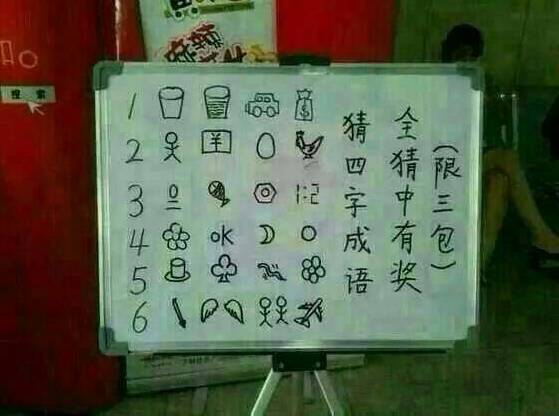 搜索
1
2 ¥
3 1:2
4 OK
5
6
猜四字成语
全猜中有奖
(限三包)